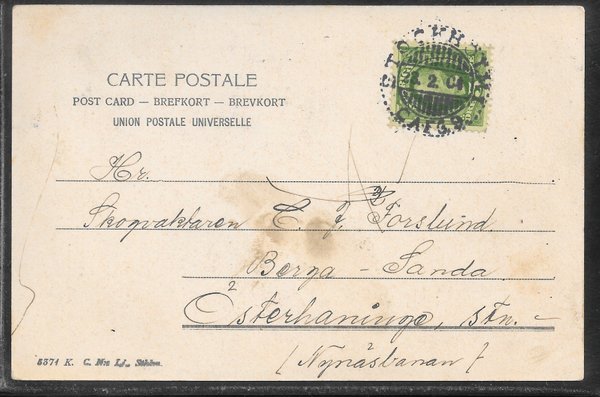 CARTE POSTALE
POST CARD — BREFKORT — BREVKORT
UNION POSTALE UNIVERSELLE
STOCKHOLM
2. 04
Hr.
Skogvaktaren C. J. Forslund.
Berga - Sanda
Österhaninge, stn. -
(Nynäsbanan)
5371 K.